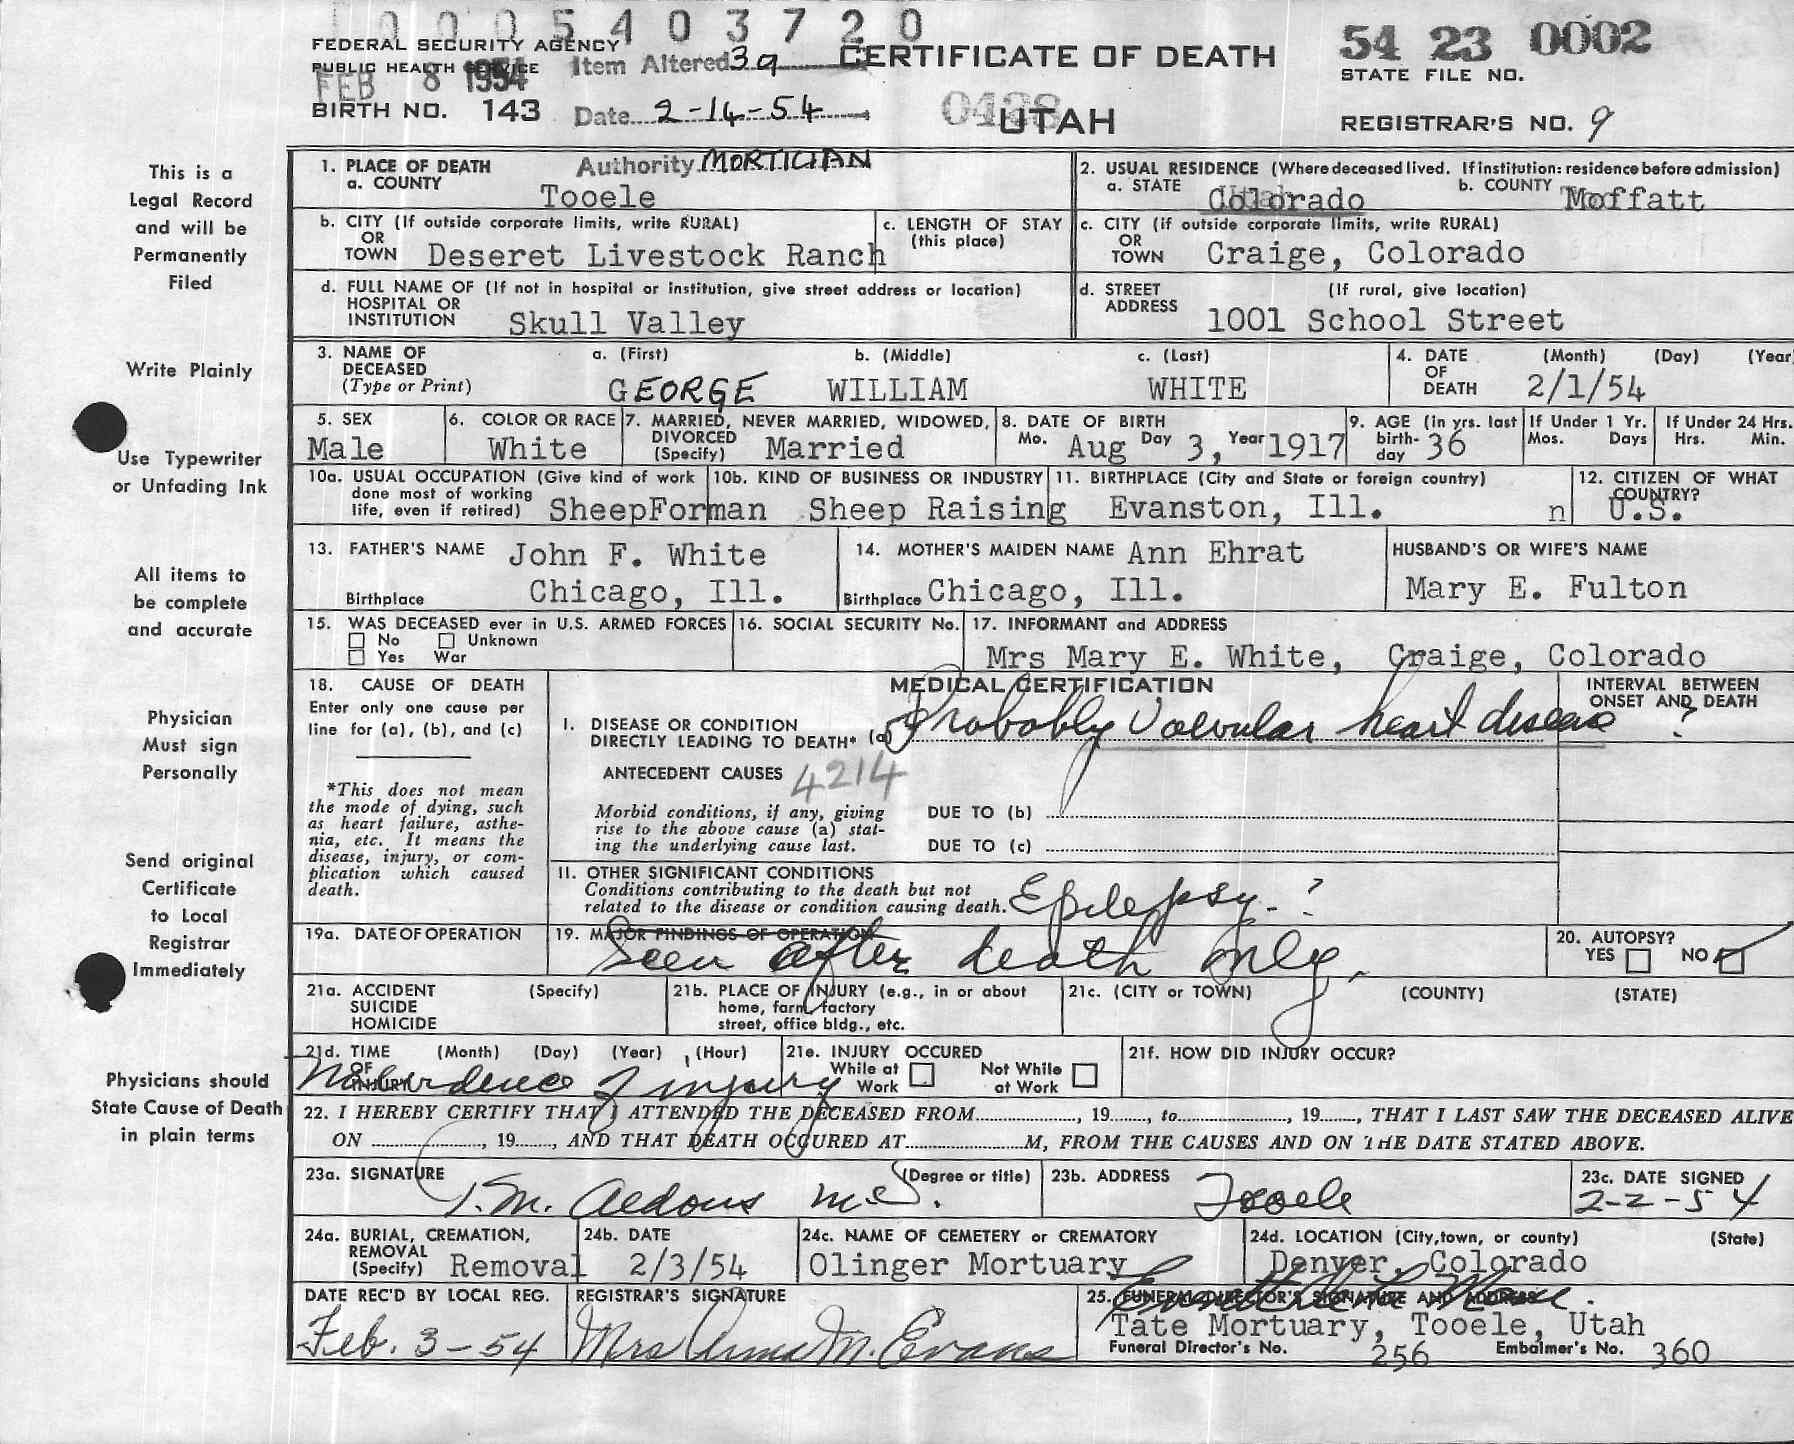 0005403720
FEDERAL SECURITY AGENCY
PUBLIC HEALTH SERVICE
FEB 8 1954
Item Altered 3a
CERTIFICATE OF DEATH
54 23 0002
STATE FILE NO.
BIRTH NO. 143
Date 2-14-54
UTAH
REGISTRAR'S NO. 9
Authority MORTICIAN
This is a
Legal Record
and will be
Permanently
Filed
Write Plainly
Use Typewriter
or Unfading Ink
All items to
be complete
and accurate
Physician
Must sign
Personally
Send original
Certificate
to Local
Registrar
Immediately
Physicians should
State Cause of Death
in plain terms
1. PLACE OF DEATH
a. COUNTY Tooele
2. USUAL RESIDENCE (Where deceased lived. If institution: residence before admission)
a. STATE Colorado b. COUNTY Moffatt
b. CITY (If outside corporate limits, write RURAL)
OR
TOWN Deseret Livestock Ranch
c. LENGTH OF STAY
(this place)
c. CITY (if outside corporate limits, write RURAL)
OR
TOWN Craige, Colorado
d. FULL NAME OF (If not in hospital or institution, give street address or location)
HOSPITAL OR
INSTITUTION Skull Valley
d. STREET (If rural, give location)
ADDRESS 1001 School Street
3. NAME OF DECEASED
(Type or Print)
a. (First) b. (Middle) c. (Last)
GEORGE WILLIAM WHITE
4. DATE OF DEATH (Month) (Day) (Year
2/1/54
5. SEX
Male
6. COLOR OR RACE
White
7. MARRIED, NEVER MARRIED, WIDOWED,
DIVORCED
(Specify) Married
8. DATE OF BIRTH
Mo. Aug Day 3, Year 1917
9. AGE (in yrs. last
birth-
day 36
If Under 1 Yr.
Mos. Days
If Under 24 Hrs.
Hrs. Min.
10a. USUAL OCCUPATION (Give kind of work
done most of working
life, even if retired) SheepForman
10b. KIND OF BUSINESS OR INDUSTRY
Sheep Raising
11. BIRTHPLACE (City and State or foreign country)
Evanston, Ill. n
12. CITIZEN OF WHAT
COUNTRY?
U.S.
13. FATHER'S NAME John F. White
Birthplace Chicago, Ill.
14. MOTHER'S MAIDEN NAME Ann Ehrat
Birthplace Chicago, Ill.
HUSBAND'S OR WIFE'S NAME
Mary E. Fulton
15. WAS DECEASED ever in U.S. ARMED FORCES
No Unknown
Yes War
16. SOCIAL SECURITY No.
17. INFORMANT and ADDRESS
Mrs Mary E. White, Craige, Colorado
18. CAUSE OF DEATH
Enter only one cause per
line for (a), (b), and (c)
*This does not mean
the mode of dying, such
as heart failure, asthe-
nia, etc. It means the
disease, injury, or com-
plication which caused
death.
MEDICAL CERTIFICATION
INTERVAL BETWEEN
ONSET AND DEATH
I. DISEASE OR CONDITION
DIRECTLY LEADING TO DEATH* (a) Probably Valvular heart disease ?
ANTECEDENT CAUSES 4214
Morbid conditions, if any, giving
rise to the above cause (a) stat-
ing the underlying cause last.
DUE TO (b)
DUE TO (c)
II. OTHER SIGNIFICANT CONDITIONS
Conditions contributing to the death but not
related to the disease or condition causing death. Epilepsy. ?
19a. DATE OF OPERATION
19. MAJOR FINDINGS OF OPERATION
Seen after death only.
20. AUTOPSY?
YES NO
21a. ACCIDENT (Specify)
SUICIDE
HOMICIDE
21b. PLACE OF INJURY (e.g., in or about
home, farm, factory
street, office bldg., etc.
21c. (CITY or TOWN) (COUNTY) (STATE)
21d. TIME (Month) (Day) (Year) (Hour)
OF
INJURY
No evidence of injury
21e. INJURY OCCURED
While at Work Not While at Work
21f. HOW DID INJURY OCCUR?
22. I HEREBY CERTIFY THAT I ATTENDED THE DECEASED FROM, 19, to, 19, THAT I LAST SAW THE DECEASED ALIVE
ON, 19, AND THAT DEATH OCCURED AT M, FROM THE CAUSES AND ON THE DATE STATED ABOVE.
23a. SIGNATURE (Degree or title)
T.M. Aldous M.D.
23b. ADDRESS Tooele
23c. DATE SIGNED
2-2-54
24a. BURIAL, CREMATION,
REMOVAL
(Specify) Removal
24b. DATE
2/3/54
24c. NAME OF CEMETERY OR CREMATORY
Olinger Mortuary
24d. LOCATION (City, town, or county) (State)
Denver, Colorado
DATE REC'D BY LOCAL REG.
Feb. 3-54
REGISTRAR'S SIGNATURE
Mrs Anna M. Evans
25. FUNERAL DIRECTOR'S SIGNATURE AND ADDRESS
Tate Mortuary, Tooele, Utah
Funeral Director's No. 256 Embalmer's No. 360